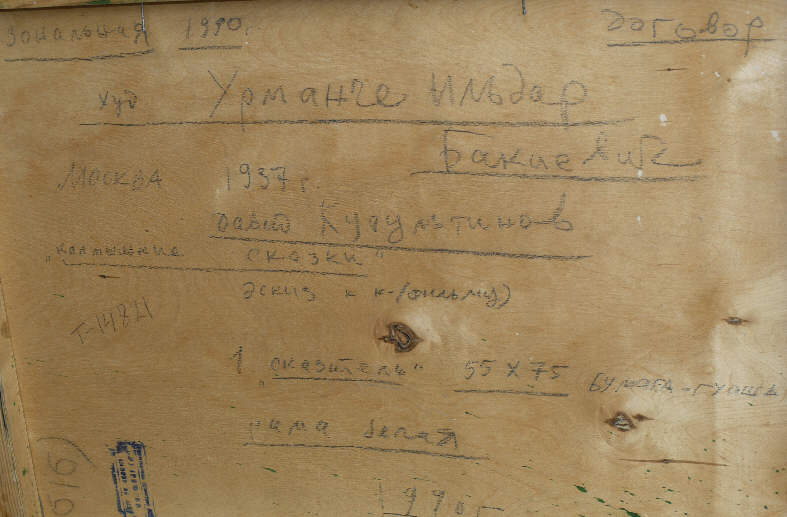 зональная 1990г. договор
худ Урманче Ильдар
Бакиевич
Москва 1937г.
Давид Кугультинов
„калмыцкие сказки"
эскиз к к-/фильму)
Т-14821
1 „сказитель" 55 х 75 бумага-гуашь
рама белая
616)
1990г